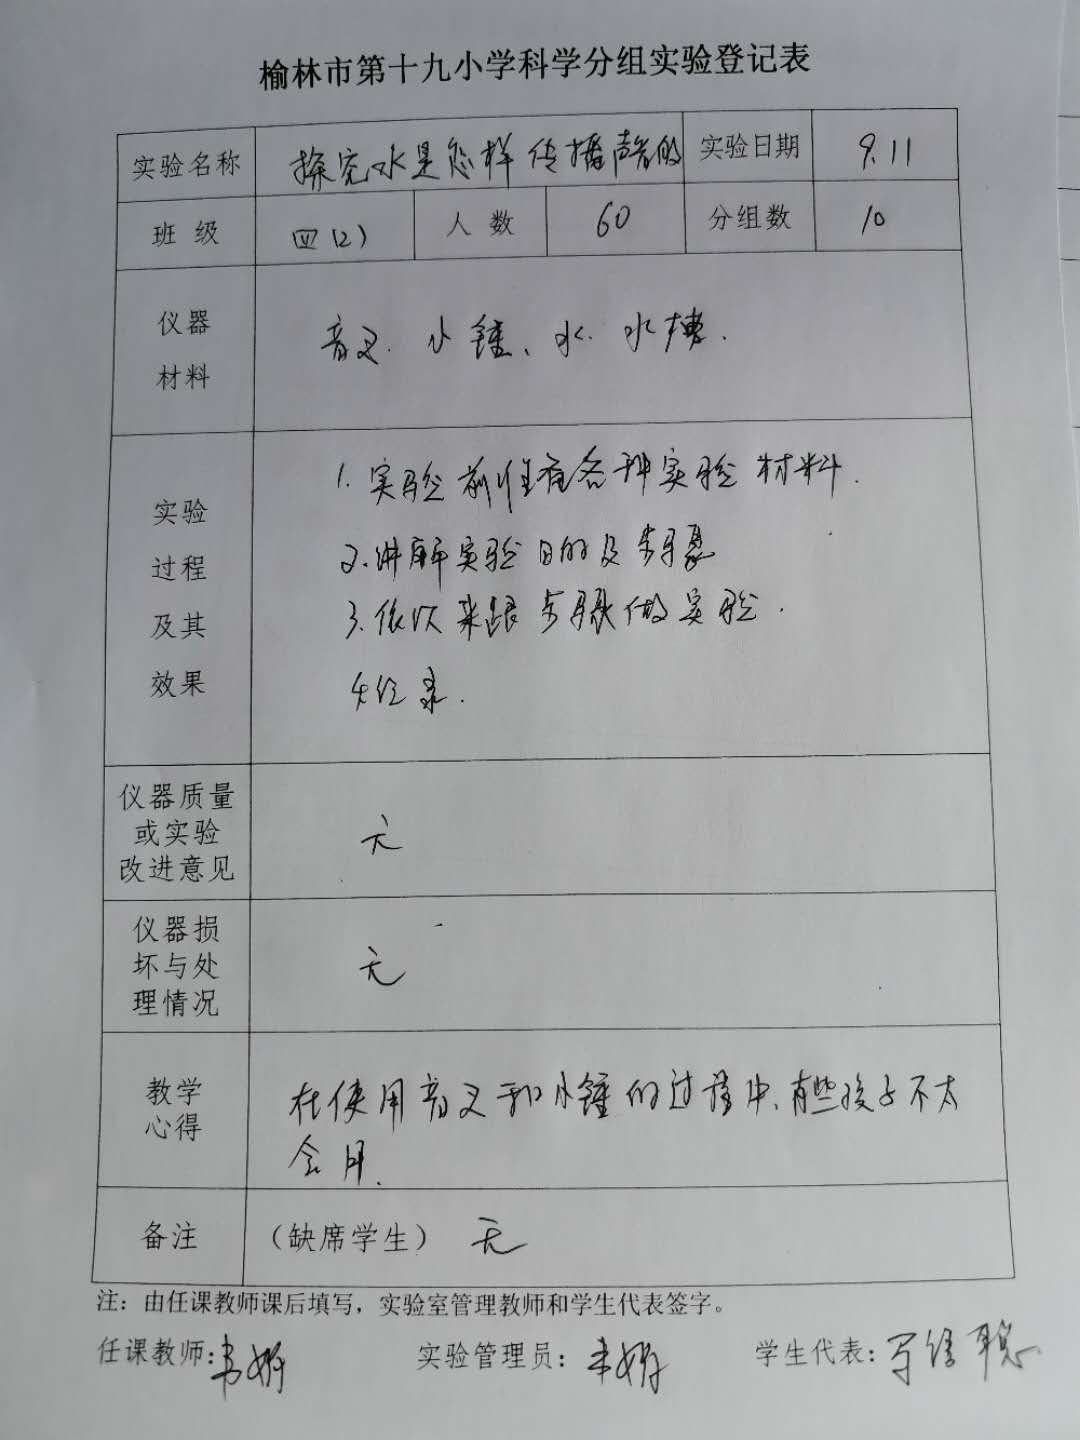 榆林市第十九小学科学分组实验登记表
实验名称 探究水是怎样传播声音的 实验日期 9.11
班级 四(2) 人数 60 分组数 10
仪器
材料
音叉、小锤、水、水槽.
实验
过程
及其
效果
1. 实验前准备各种实验材料.
2. 讲解实验目的及步骤
3. 依次来跟步骤做实验.
4 记录.
仪器质量
或实验
改进意见
无
仪器损
坏与处
理情况
无
教学
心得
在使用音叉和小锤的过程中、有些孩子不太
会用.
备注 (缺席学生) 无
注：由任课教师课后填写，实验室管理教师和学生代表签字。
任课教师: 实验管理员: 学生代表: